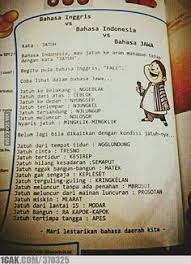 Bahasa Inggris
vs
Bahasa Indonesia
vs
Bahasa JAWA
Kata : JATUH
Bahasa Indonesia, mau jatuh ke arah manapun tetap
dengan kata "JATUH".
Begitu pula bahasa Inggris, "FALL".
Coba lihat dalam bahasa Jawa...
Jatuh ke belakang : NGGEBLAK
Jatuh ke depan : NYUNGSEP
Jatuh terlempar :
Jatuh meluncur : NDLOSOR
Nyaris jatuh : MINGKELIK-MINGKELIK
Belum lagi bila dikaitkan dengan kondisi jatuhnya.
Jatuh dari tempat tidur : NGGLUNDUNG
Jatuh cinta : TRESNO
Jatuh tertidur : KESIREP
Jatuh hilang kesadaran : SEMAPUT
Jatuh nggak bangun-bangun : MATEK
Jatuh gak sengaja : KEPLESET
Jatuh terguling-guling : KRINGKELAN
Jatuh meluncur tanpa ada penahan :
Jatuh meluncur dari mainan luncuran : PROSOTAN
Jatuh miskin : MLARAT
Jatuh dari lantai di gedung : MODAR
Jatuh Bangun : RA KAPOK-KAPOK
Jatuh tertimpa tangga : APES
- Mari lestarikan bahasa daerah kita -
1CAK.COM/370325